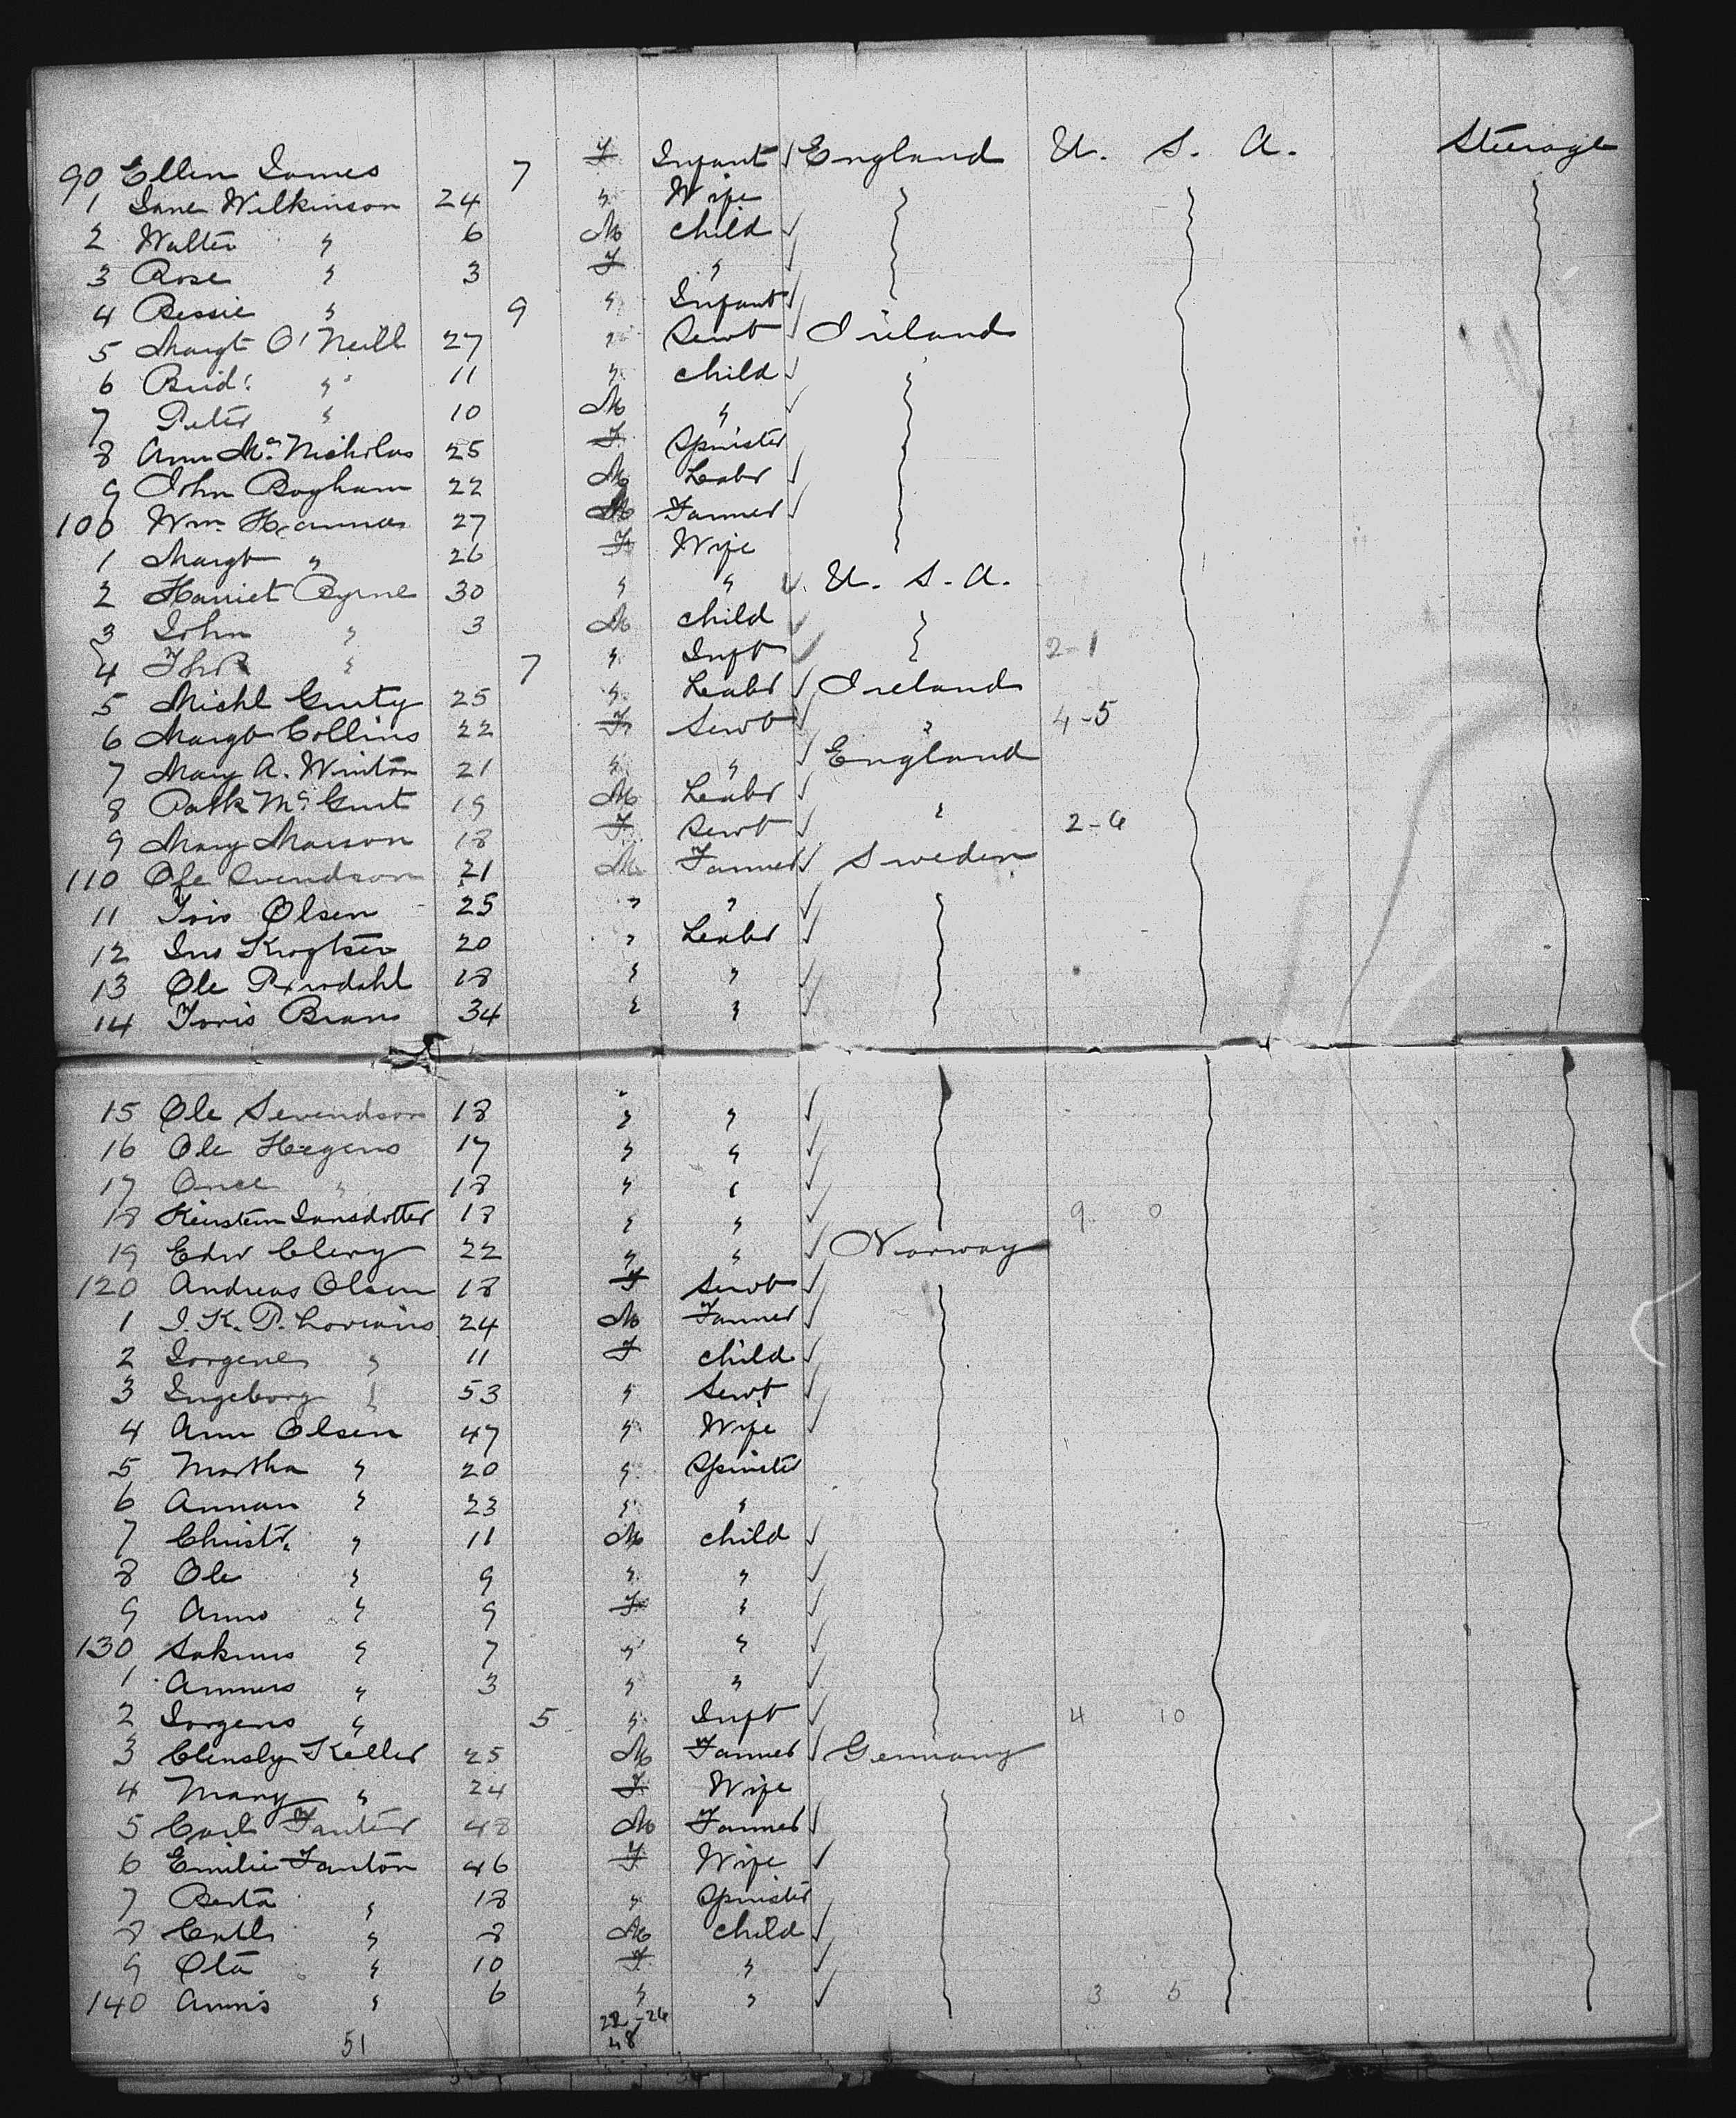 90 Ellen James 7 F Infant √ England U. S. A. Steerage
1 Jane Wilkinson 24 " Wife
2 Walter " 6 M Child √
3 Rose " 3 F " √
4 Bessie " 9 " Infant √
5 Margt O'Neill 27 " Servt √ Ireland
6 Brid. " 11 " Child √
7 Peter " 10 M " √
8 Ann Mc Nicholas 25 F Spinster
9 John Bogham 22 M Labr √
100 Wm. 27 M Farmer √
1 Margt " 26 F Wife
2 Harriet Byrne 30 " " √ U. S. A.
3 John " 3 M Child √ "
4 " 7 " Inft √ " 2-1
5 Michl Ginty 25 " Labr √ Ireland
6 Margt Collins 22 F Servt √ " 4-5
7 Mary A. Winton 21 " " √ England
8 Patk Mc Gurt 19 M Labr √
9 Mary Maison 18 F Servt √ " 2-6
110 Ole Svendson 21 M Farmer √ Sweden
11 Olsen 25 " " √
12 20 " Labr √
13 Ole 18 " " √
14 34 " " √
15 Ole Sevendson 18 " " √
16 Ole Hegens 17 " " √
17 " 18 " " √
18 Kerstem Jansdotter 18 " " √ 9 0
19 Edw Clery 22 " " √ Norway
120 Andreas Olsen 18 F Servt √
1 J. K. P. 24 M Farmer √
2 Jorgene " 11 F Child √
3 Ingeborg " 53 " Servt √
4 Ann Olsen 47 " Wife √
5 Martha " 20 " Spinster
6 Annan " 23 " "
7 Christr. " 11 M Child √
8 Ole " 9 " " √
9 " 9 F " √
130 " 7 " " √
1 " 3 " " √
2 Jorgens " 5 " Inft √ 4 10
3 Keller 25 M Farmer √ Germany
4 Mary " 24 F Wife
5 Carl Fanter 48 M Farmer √
6 Emilie Fanton 46 F Wife √
7 Berta " 18 " Spinster
8 " 8 M Child √
9 Ota " 10 F " √
140 Annis " 6 " " √ 3 5
22-26
51 48